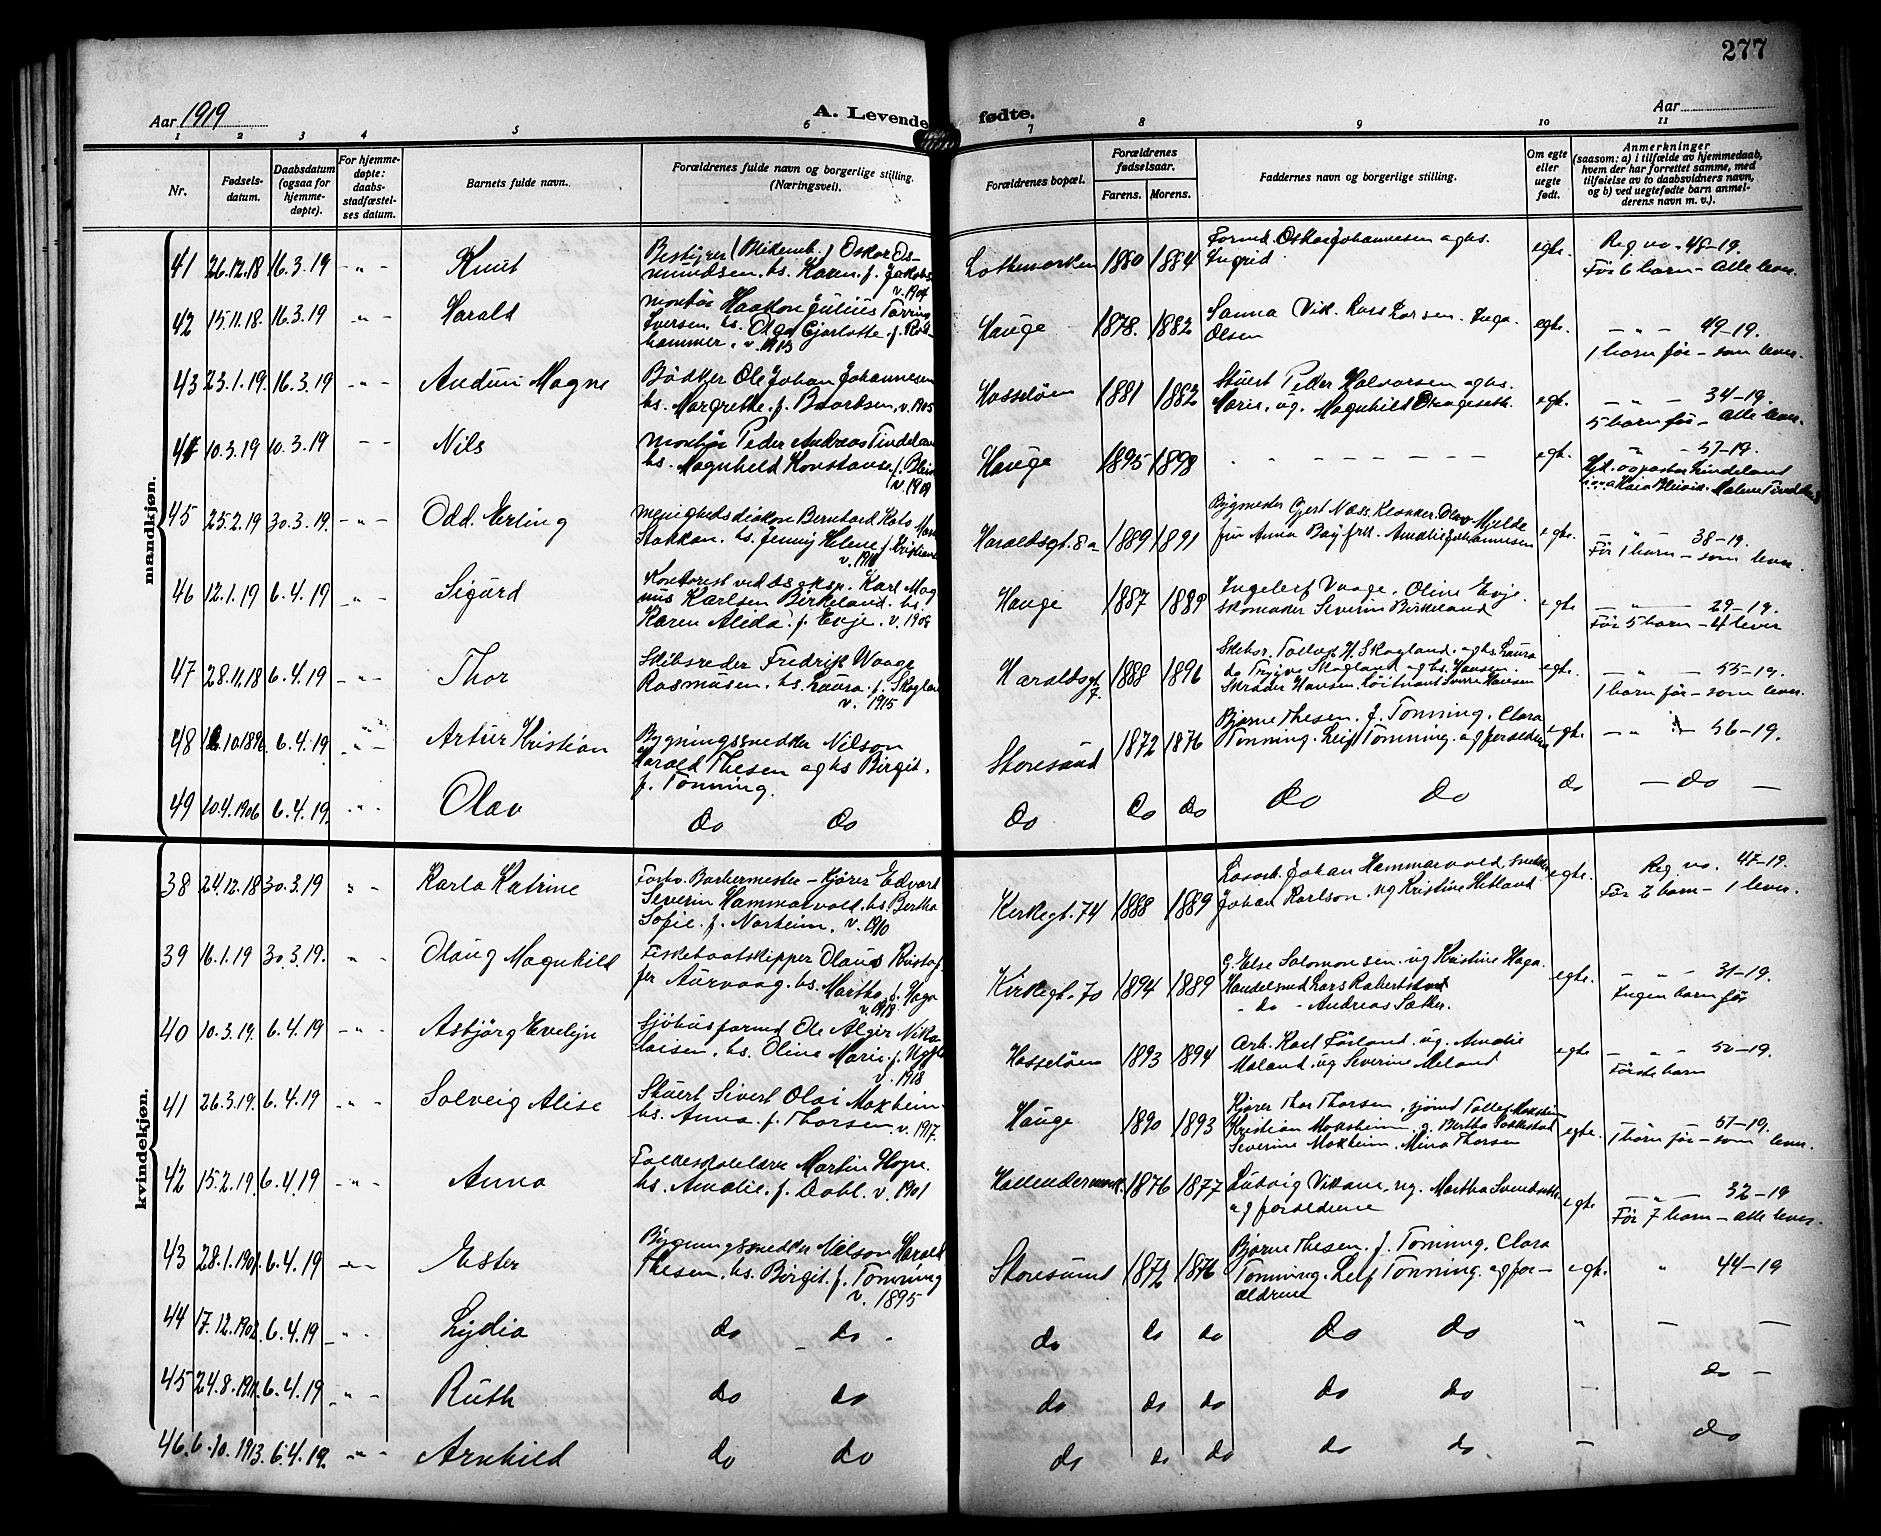 277
Aar 1919
A. Levende fødte.
Aar
1 2 3 4 5 6 7 8 9 10 11
Nr.
Fødsels-
datum.
Daabsdatum
(ogsaa for
hjemme-
døpte).
For hjemme-
døpte:
daabs-
stadfæstel-
ses datum.
Barnets fulde navn.
Forældrenes fulde navn og borgerlige stilling.
(Næringsvei).
Forældrenes bopæl.
Forældrenes
fødselsaar.
Farens. Morens.
Faddernes navn og borgerlige stilling.
Om egte
eller
uegte
født.
Anmerkninger
(saasom: a) i tilfælde av hjemmedaab,
hvem der har forrettet samme, med
tilføielse av to daabsvidners navn,
og b) ved uegtefødte barn anmel-
derens navn m. v.).
mandkjøn.
41 26.12.18 16.3.19 - " - Knut
Bestyrer Oskar Os-
mundsen. hs. Karen f. Jakobs
v. 1904
1880 1884
Formd. Oskar Johannesen og hs.
Ingrid
egte.
Reg no. 48-19.
Før 6 barn - Alle lever.
42 15.11.18. 16.3.19 - " - Harald
Montør Haakon Julius
Iversen hs. Olga f.
v. 1913
Hauge 1878. 1882
Sanna Vik. Larsen. Inga
Olsen
egte.
- " - 49-19.
1 barn før - som lever.
43 23.1.19. 16.3.19 - " - Audun Magne
Bødker Ole Johan Johannesen
hs. Margrethe. f. Baardsen, v. 1905
Hasseløen 1881 1882
Stuert Peder Halvorsen og hs.
Marie, ug. Magnhild
egte.
- " - 34-19.
5 barn før - Alle lever.
44 10.3.19 10.3.19 - - Nils
Montør Peder Andreas Tindeland
hs. Magnhild Konstanse f.
v. 1919
Hauge 1895 1898
- - - - - - - -
egte.
" - 57-19.
45 25.2.19 30.3.19. - " - Odd. Erling
Menighedsdiakon Bernhard
Stakkan. hs. Jenny Helene f. Kristians
Haraldsgt. 8a 1889 1891
Bygmester Gjert Næss. Klokker Olav Mjelde
fru Anna Bøy frk. Amalie Johannesen
egte.
- " - 38-19.
Før 1 barn - som lever.
46 12.1.19 6.4.19 - " - Sigurd
Kontorist Karl Mag
nus Karlsen Birkeland. hs.
Karen Alida. f. Evje. v. 1908
Hauge 1887 1889
Ingeleif Vaage. Oline Evje.
skomaker Severin Birkeland
egte
- " - 29-19.
Før 5 barn - 4 lever
47 28.11.18 6.4.19 - " - Thor
Skibsreder Fredrik Waage
Rasmusen. hs. Laura. f. Skogland
v. 1915
Haraldsgt
7. 1888 1896
Skibsr. Tollak H. Skogland. og hs. Laura
do Trygve Skogland og hs. Hansen.
Skræder Hansen. Løitnant Sverre Hansen
egte.
- " - 53-19.
1 barn før - som lever.
48 6.4.19 - " - Artur Kristian
Bygningssnedker Nilson
Harald Thesen og hs Birgit.
f. Tonning.
Storesund 1872 1876
Bjarne Thesen. f. Tonning. Clara
Tonning. Leif Tonning. og forældrene
egte
- " - 56-19.
49 10.4.1906 6.4.19. - " - Olav
do do
do do do
do do
do
- do -
kvindekjøn.
38 24.12.18 30.3.19 " - Karla Katrine
Forhv. Barbermester - kjører Edvard
Severin Hammarvold. hs. Bertha
Sofie. f. Norheim. v. 1910
Kirkegt. 74 1888 1889
Johan Hammarvold, snedker
Johan Karlson. ug Kristine Hetland
egte.
Reg. no. 47-19.
Før 2 barn - 1 lever.
39 16.1.19 30.3.19. " - Olaug Magnhild
Fiskebaatskipper Olaus Kristof
fer Aurvaag. hs. Martha f. Haga
v. 1918
Kirkegt. 70 1894 1889
G. Else Salomonsen. ug Kristine Haga.
Handelsmd Lars
- do - Andreas Sæther.
egte.
- " - 31-19.
Ingen barn før
40 10.3.19. 6.4.19 - " - Asbjørg Evelyn
Sjøhusformd Ole Alger Niko
laisen. hs. Oline Marie. f.
v. 1918
Hasseløen 1893 1894
Arb. Karl Førland. ug. Amalie
Moland. ug Severine Meland
egte
- " - 50-19.
Første barn
41 26.3.19. 6.4.19 - " - Solveig Alise
Stuert Sivert Olai Mokheim.
hs. Anna. f. Thorsen. v. 1917.
Hauge 1890 1893
Kjører Thor Thorsen, sjømd Tollef Mokheim
Kristian Moksheim. g. Bertha
Severine Mokheim. Mina Thorsen
egte.
- " - 51-19.
1 barn før - som lever.
42 15.2.19. 6.4.19 - " - Anna
Folkeskolelærer Martin Hope.
hs. Amalie. f. Dahl. v. 1901
1876 1877
Ludvig Vikane, ug. Martha
og forældrene
egte
- " - 32-19
Før 7 barn - alle lever.
43 6.4.19 - " - Ester
Bygningssnedker Nilson Harald
Thesen. hs. Birgit. f. Tonning
v. 1895
Storesund 1872 1876
Bjarne Thesen. f. Tonning. Clara
Tonning. Leif Tonning. og for-
ældrene
egte.
" 44-19
44 6.4.19 - " - Lydia
do do -
do do do
do do
" - -
45 6.4.19 - " - Ruth
do do
do do do
do do
-
do -
46. 6.10.1913. 6.4.19. - " - Arnhild
do do
do do do
do do.
-
do